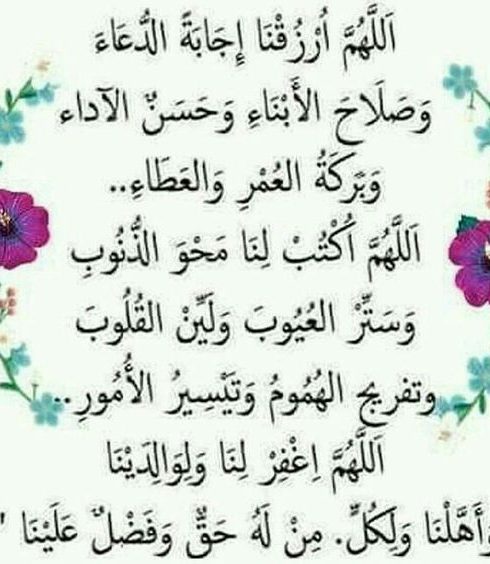 اَللَّهُمَّ اُرْزُقْنَا إِجَابَةً الدُّعَاءَ
وَصَلَاحَ الأَبْنَاءِ وَحَسَنٌ الآداء
وَبَرَكَةُ العُمْرِ وَالعَطَاءِ..
اَللَّهُمَّ اُكْتُبْ لِنَا مَحْوَ الذُّنُوبِ
وَسَتِّرْ العُيُوبَ وَلَيِّنْ القُلُوبَ
وتفريج الهُمُومُ وَتَيْسِيرُ الأُمُورِ..
اَللَّهُمَّ اِغْفِرْ لِنَا وَلِوَالِدَيْنَا
وَأَهَّلْنَا وَلِكُلِّ. مِنْ لَهُ حَقٌّ وَفَضْلٌ عَلَيْنَا "